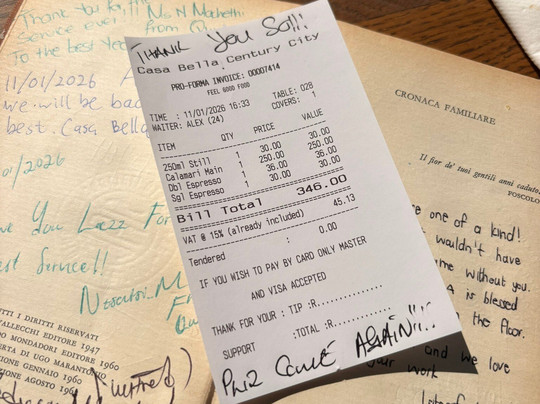 Thank You So!!!
Casa Bella Century City
PRO-FORMA INVOICE: 00007414
FEEL GOOD FOOD
TIME : 11/01/2026 16:33 TABLE: 028
WAITER: ALEX (24) COVERS: 1
ITEM QTY PRICE VALUE
250ml Still 1 30.00 30.00
Calamari Main 1 250.00 250.00
Dbl Espresso 1 36.00 36.00
Sgl Espresso 1 30.00 30.00
Bill Total 346.00
VAT @ 15% (already included) 45.13
Tendered : 0.00
IF YOU WISH TO PAY BY CARD ONLY MASTER
AND VISA ACCEPTED
THANK FOR YOUR : TIP :R..............
SUPPORT :TOTAL :R..............
Come AGAIN!!!
Thank You
service ever! from
To the best
11/01/2026
we will be
best. Casa Bella
/01/2026
You Lazz For
est Service!!
I DIRITTI RISERVATI
VALLECCHI EDITORE 1947
MONDADORI EDITORE 1960
DI UGO MARANTO
GENNAIO 1960
AGOSTO
CRONACA FAMILIARE
Il fior de' tuoi gentili anni caduto,
FOSCOLO
one of a kind!
wouldn't have
me without you.
A is blessed
the floor.
and we love
your work